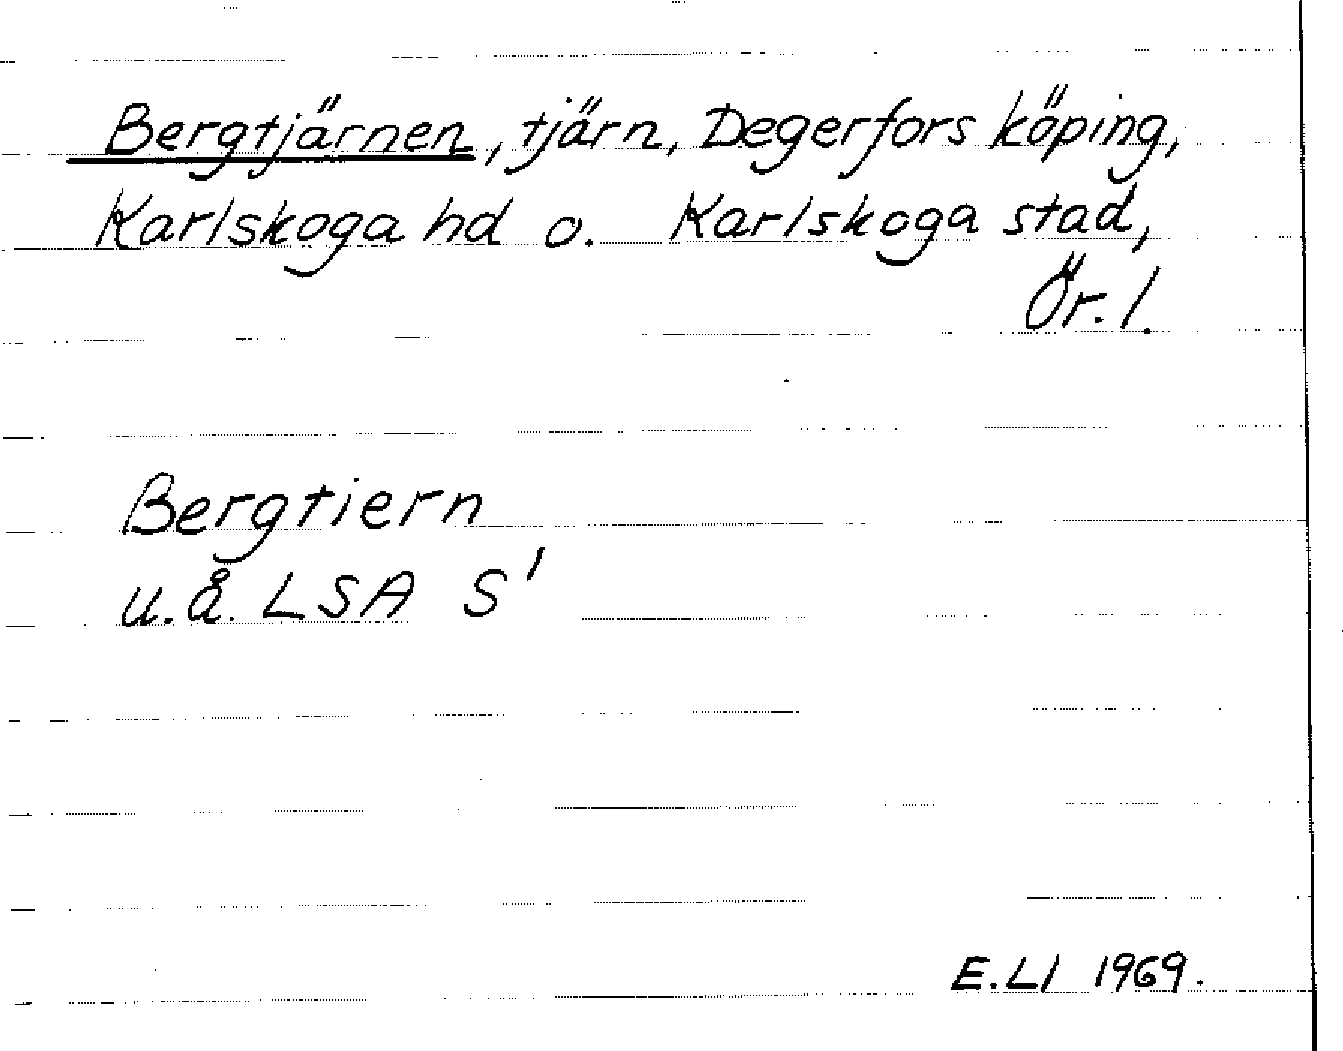 Bergtjärnen, tjärn, Degerfors köping,
Karlskoga hd o. Karlskoga stad,
Ör. l.
Bergtiern
u.å. LSA S'
E.Ll 1969.